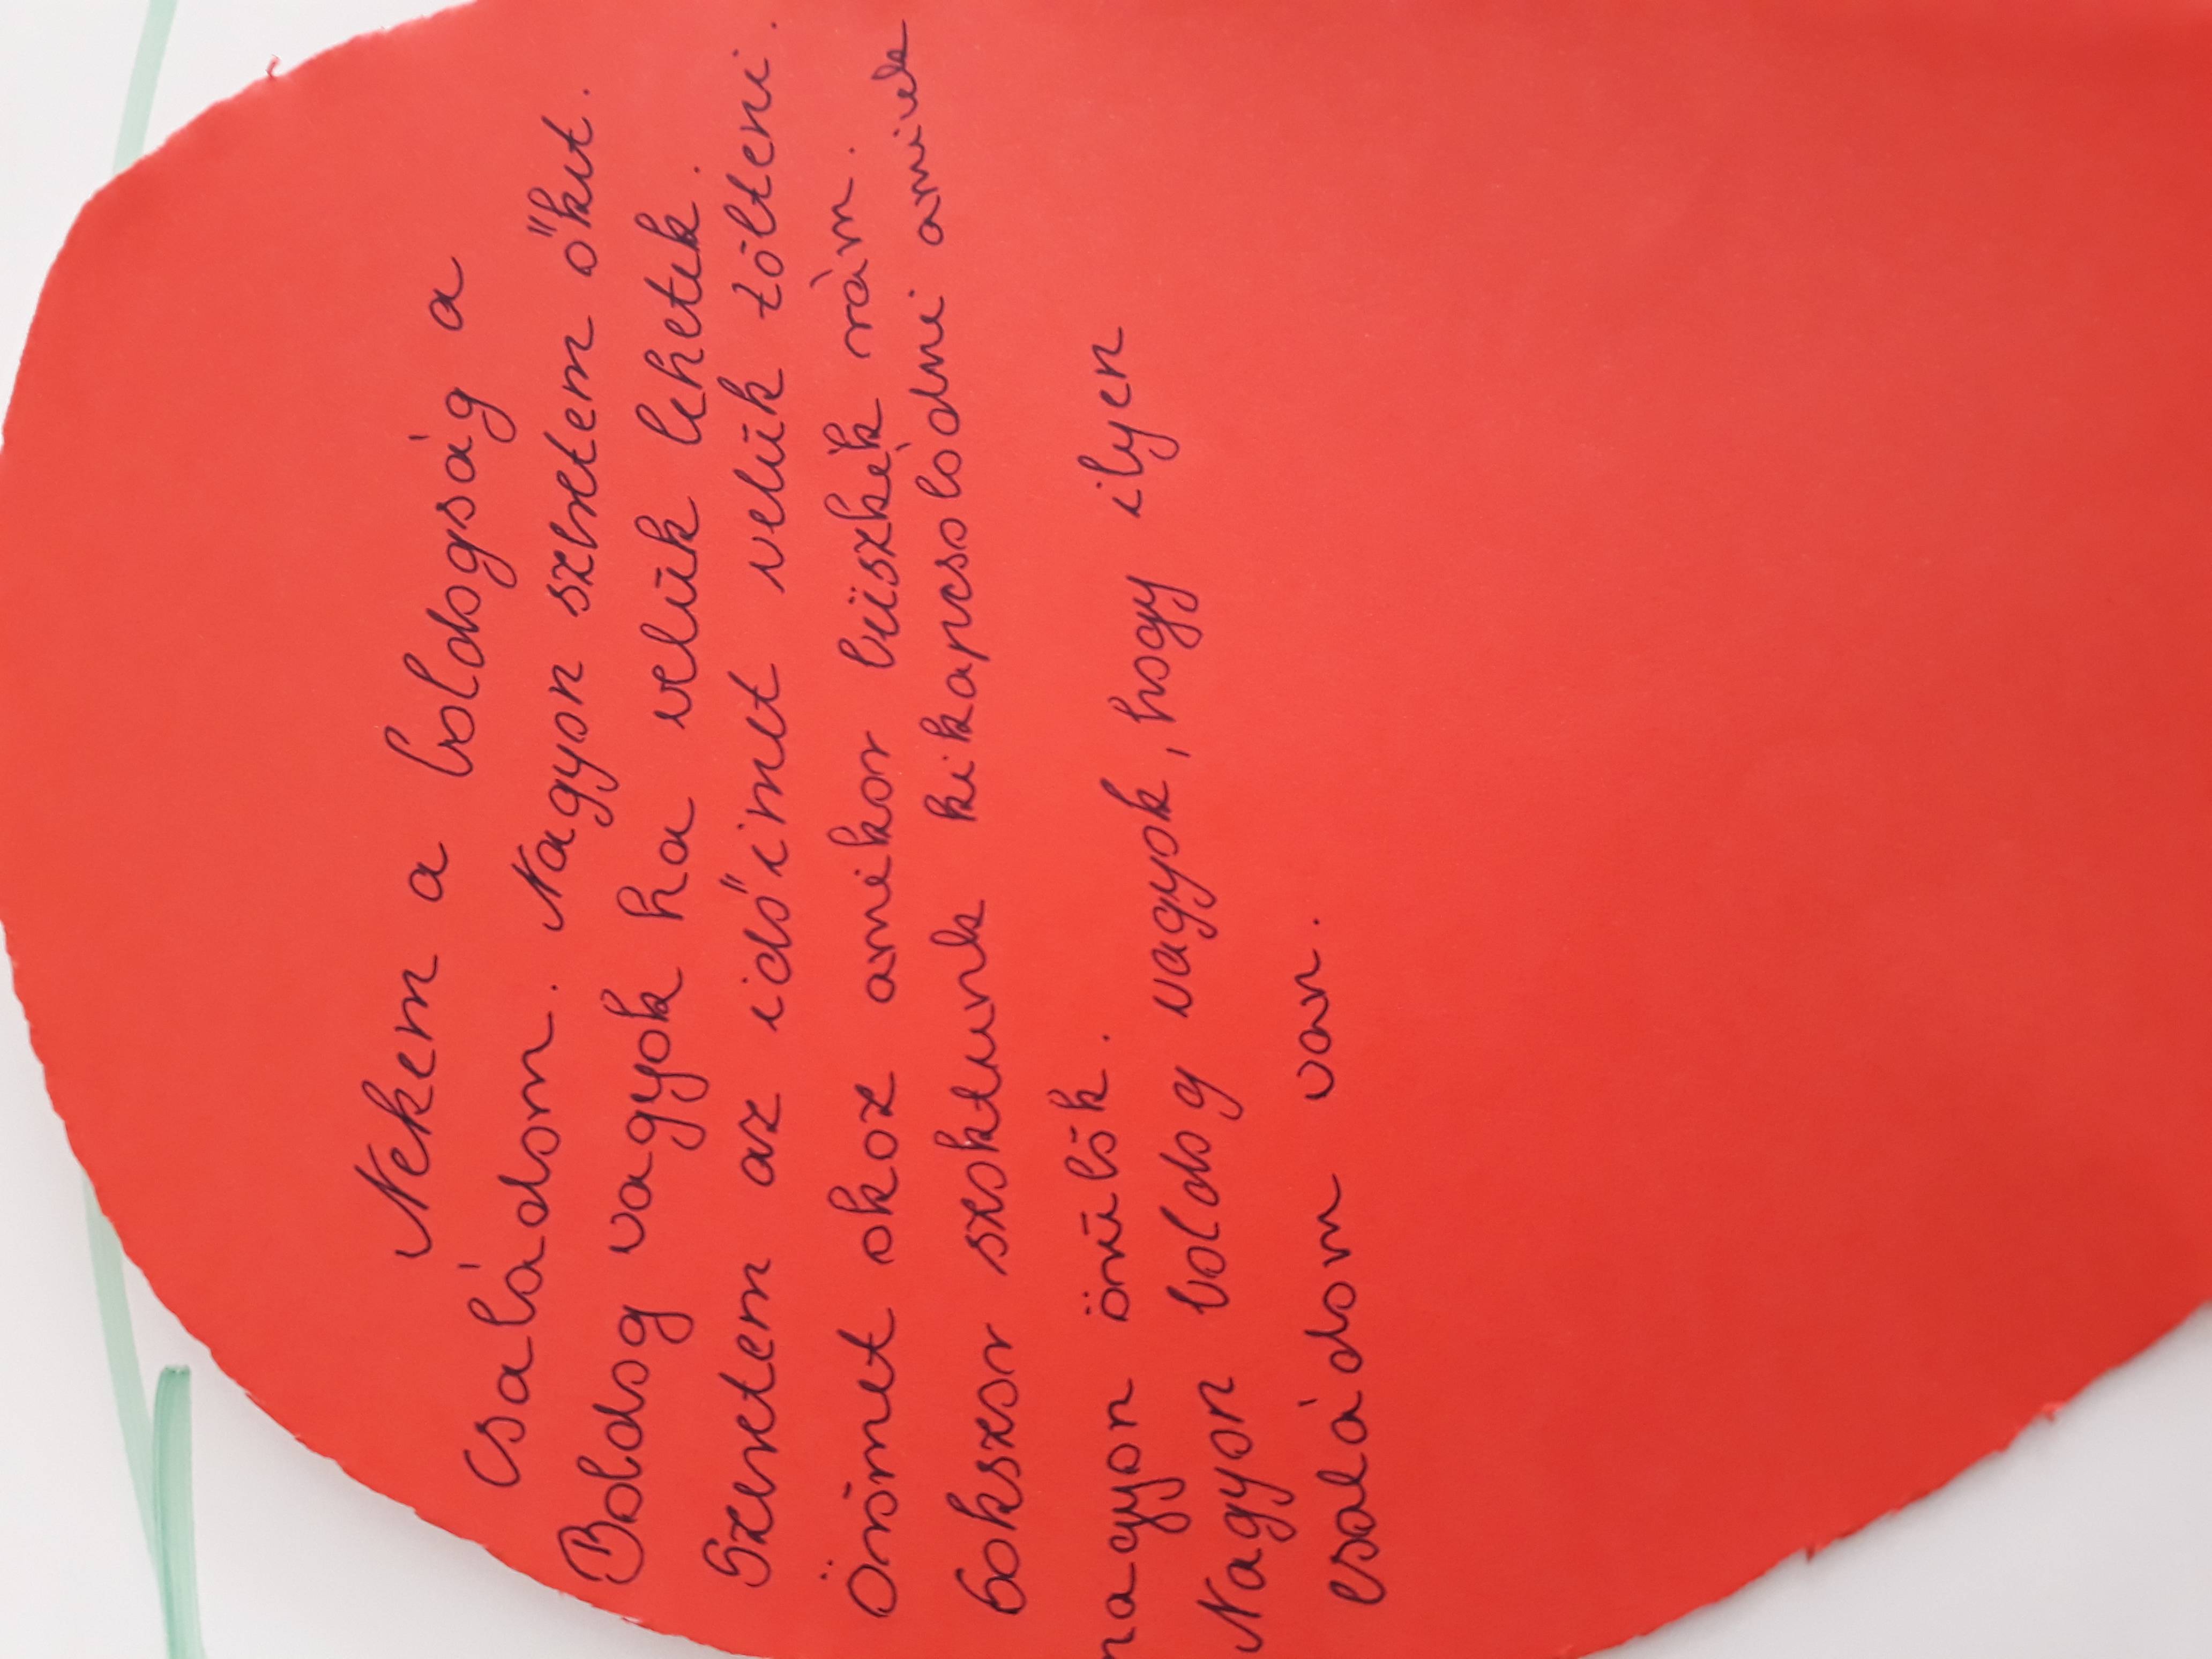 Nekem a boldogság a
családom. Nagyon szeretem őket.
Boldog vagyok ha velük lehetek.
Szeretem az időimet velük tölteni.
Örömet okoz amikor büszkék rám.
Sokszor szoktunk kikapcsolódni aminek
nagyon örülök.
Nagyon boldog vagyok, hogy ilyen
családom van.